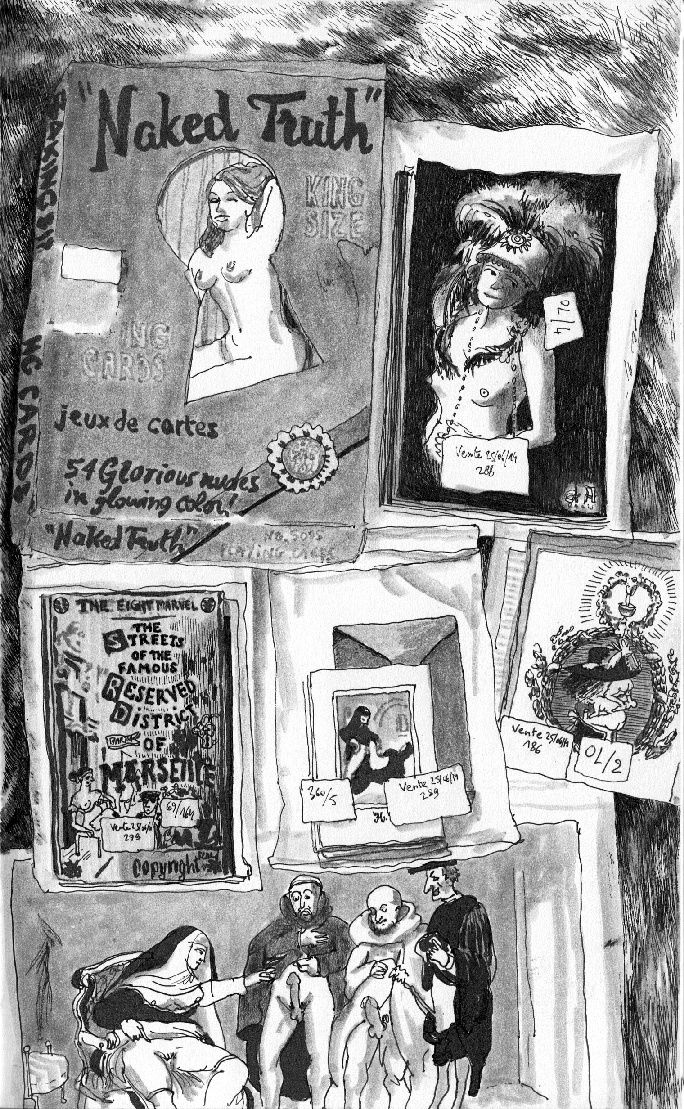 "Naked Truth"
KING
SIZE
ING
CARDS
jeux de cartes
54 Glorious nudes
in glowing color!
"Naked Truth"
NO. 5015
PLAYING CARDS
4/70
Vente 25/06/14
288
THE EIGHT MARVEL
THE
STREETS
OF THE
FAMOUS
RESERVED
DISTRICT
OF
MARSEILLE
69/164
299
Copyright
364/5
Vente 25/06/14
289
Vente 25/06/14
186
OL/2